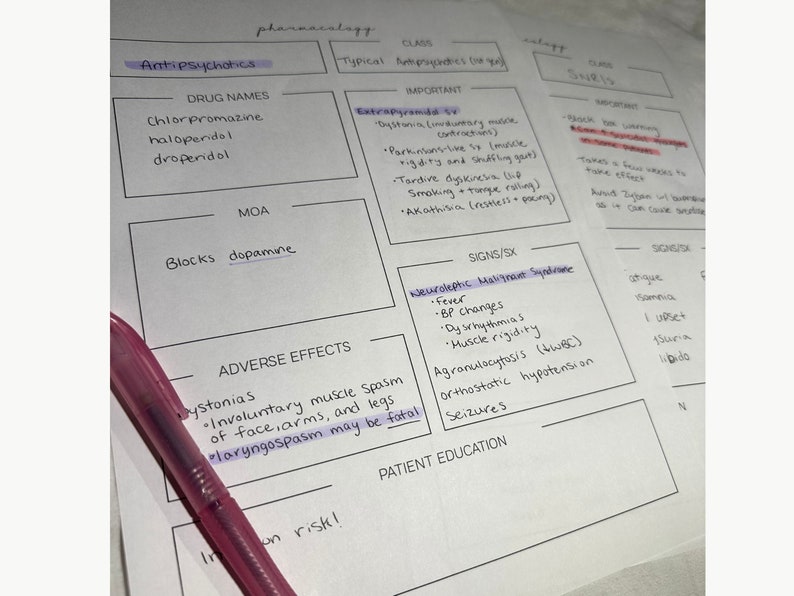 pharmacology
Antipsychotics
CLASS
Typical Antipsychotics (1st gen)
DRUG NAMES
Chlorpromazine
haloperidol
droperidol
IMPORTANT
Extrapyramidal sx
•Dystonia (involuntary muscle
contractions)
•Parkinsons-like sx (muscle
rigidity and shuffling gait)
•Tardive dyskinesia (lip
smoking + tongue rolling)
•Akathisia (restless + pacing)
MOA
Blocks dopamine
SIGNS/SX
Neuroleptic Malignant Syndrome
•Fever
•BP changes
•Dysrhythmias
•Muscle rigidity
Agranulocytosis (↓WBC)
orthostatic hypotension
seizures
ADVERSE EFFECTS
Dystonias
•Involuntary muscle spasm
of face, arms, and legs
•laryngospasm may be fatal
PATIENT EDUCATION
risk!
CLASS
SNRIs
IMPORTANT
-Black box warning
in some patients
Takes a few weeks to
take effect
Avoid Zyban w/
as it can cause overdose
SIGNS/SX
fatigue
insomnia
upset
libido
N